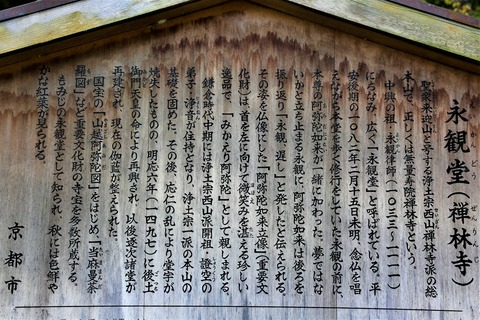 永観堂(禅林寺)
聖衆来迎山と号する浄土宗西山禅林寺派の総
本山で、正しくは無量寿院禅林寺という。
中興の祖・永観律師(一〇三三〜一一一一)
にちなみ、広く「永観堂」と呼ばれている。平
安後期の一〇八二年二月十五日未明、念仏を唱
えながら本堂を歩く修行をしていた永観の前に、
本尊の阿弥陀如来が一緒に加わった。夢ではな
いかと立ち止まる永観に、阿弥陀如来は後ろを
振り返り「永観、遅し」と発したと伝えられる。
その姿を仏像にした「阿弥陀如来立像」(重要文
化財)は、首を左に向けて微笑みを湛える珍しい
逸品で、「みかえり阿弥陀」として親しまれる。
鎌倉時代上期には浄土宗西山派開祖・證空の
弟子・浄音が住持となり、浄土宗一派の本山の
基礎を固めた。その後、応仁の乱により堂宇が
焼失したものの、明応六年(一四九七)に後土
御門天皇の命により再興され、以後逐次諸堂が
再建され、現在の伽藍が整えられた。
国宝の「山越阿弥陀図」をはじめ、「当麻曼荼
羅図」など重要文化財の寺宝を多数所蔵する。
もみじの永観堂として知られ、秋には色鮮や
かな紅葉が見られる。
京都市